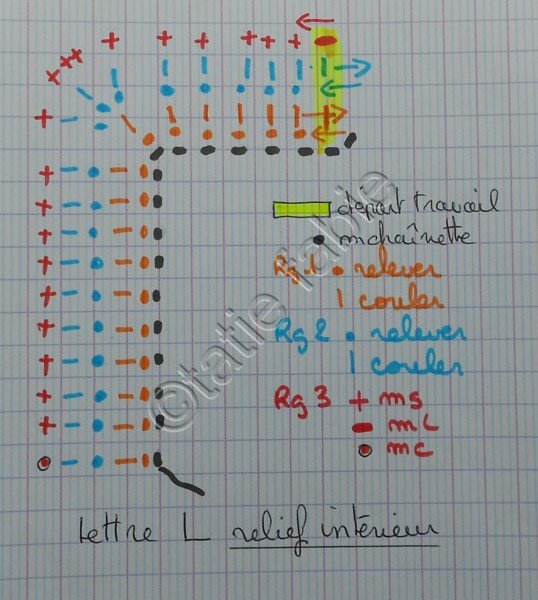 départ travail
mchaînette
Rg 1 • relever
| couler
Rg 2 • relever
| couler
Rg 3 + ms
mL
mc
©tatie fabie
Lettre L relief intérieur